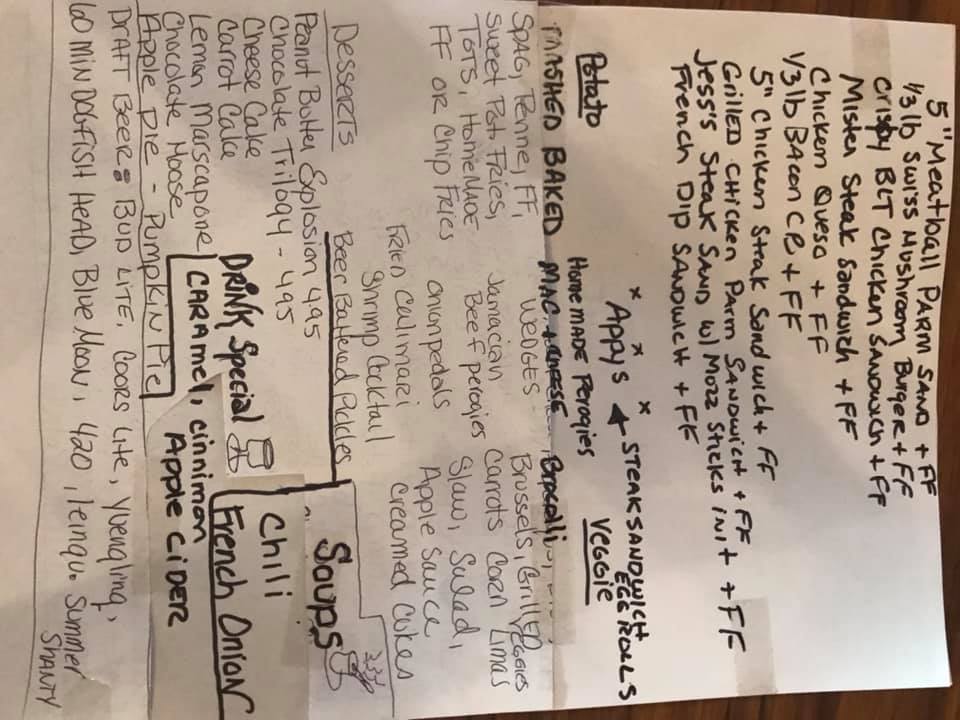 5" Meatball PARM SAND + FF
1/3 lb Swiss Mushroom Burger + FF
Crispy BLT Chicken SANDWICH + FF
Mister Steak Sandwich + FF
Chicken Queso + FF
1/3 lb BACON CB + FF
5" Chicken Steak Sandwich + FF
Grilled Chicken Parm SANDWICH + FF
Jess's Steak SAND w/ Mozz Sticks in it + FF
French Dip SANDWICH + FF
x x x
Appy's ← STEAK SANDWICH EGG ROLLS
Home MADE Perogies
Potato
Veggie
MASHED BAKED MAC + CHEESE Brocolli
SPAG, Penne, FF, Wedges Brussels, Grilled Veggies
Sweet Pot. Fries, Jamacian Carrots Corn Limas
TOTS, HomeMADE Beef perogies Slaw, Salad,
FF OR Chip Fries Onion pedals Apple Sauce
Fried Calimari Creamed Cukes
Shrimp Cocktail
Beer Battered Pickles
Soups
Chili
French Onion
Desserts
Peanut Butter Explosion 4.95
Chocolate Trilogy - 4.95
Cheese Cake
Carrot Cake
Lemon Marscapone
Chocolate Moose
Apple Pie - Pumpkin Pie
DRINK Special
CARAMEL, cinnimon
Apple CIDER
DRAFT Beer: BUD LITE, COORS Lite, Yuengling,
60 MIN DOGFISH HEAD, Blue Moon, 420, Leinqu. Summer
SHANTY